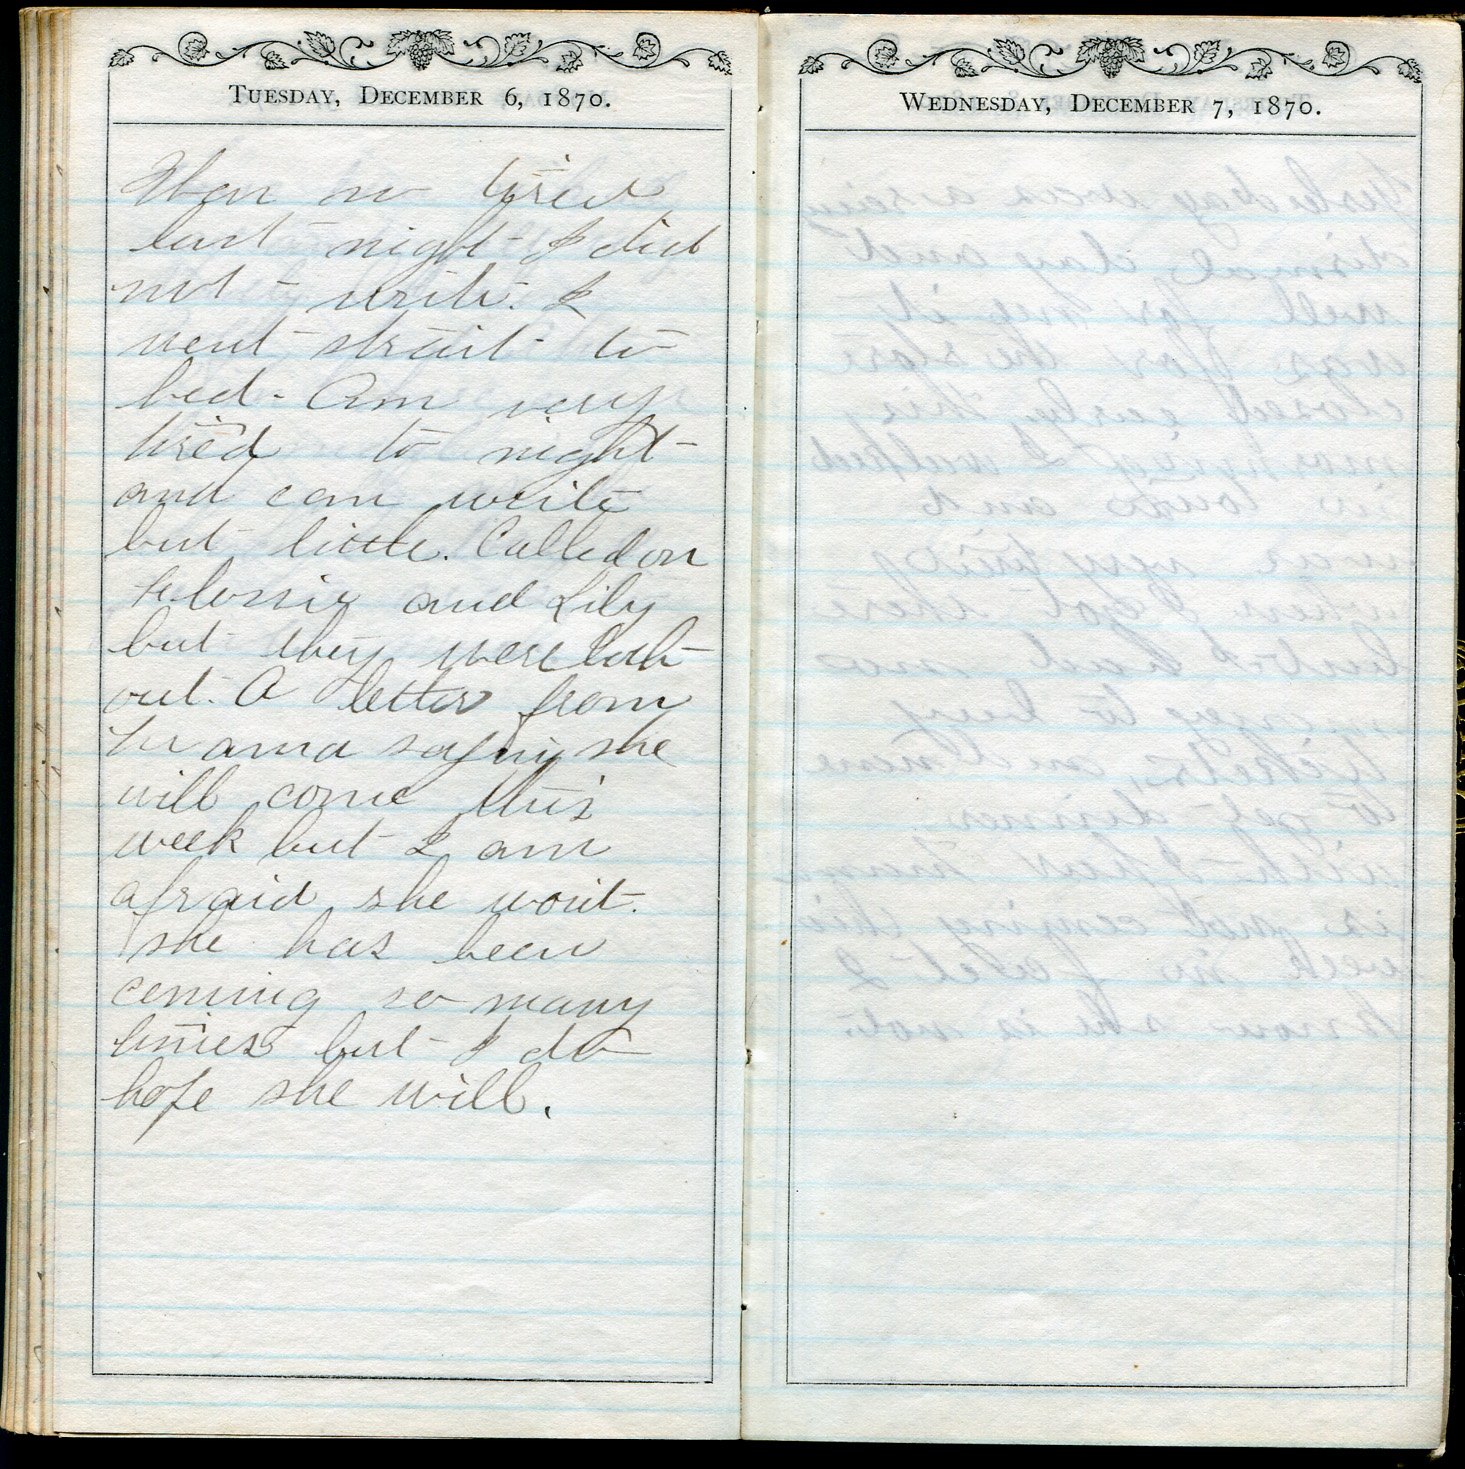 TUESDAY, DECEMBER 6, 1870.
Was so tired
last night I did
not write. I
went strait to
bed. Am very
tired to night
and can write
but little. Called on
Flossie and Lily
but they were both
out. A letter from
Mama saying she
will come this
week but I am
afraid she wont.
She has been
coming so many
times but I do
hope she will.
WEDNESDAY, DECEMBER 7, 1870.